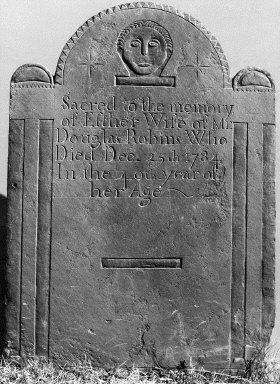 Sacred to the memory
of Esther Wife of Mr
Douglas Robins Who
Died Dec. 25th 1784
In the year of
her Age